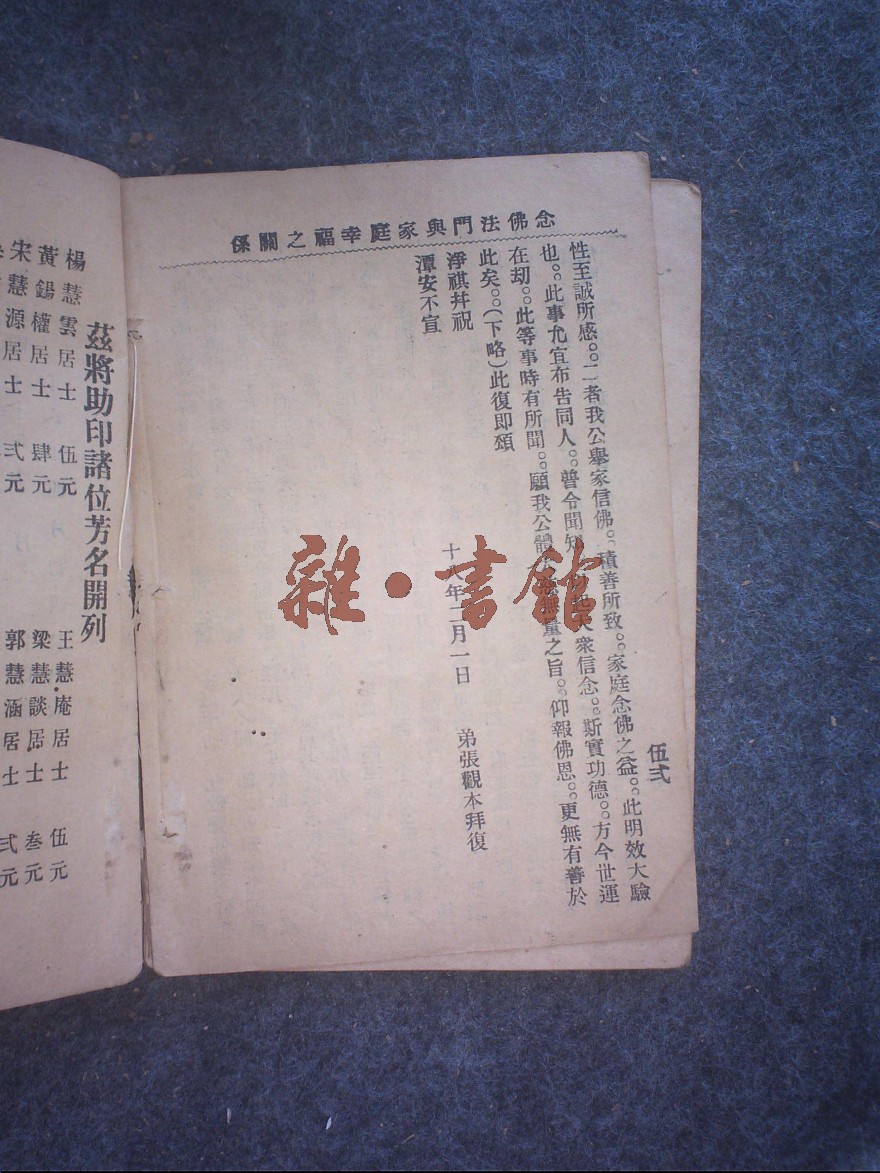 念佛法門與家庭幸福之關係
伍弍
性至誠所感。。二者我公舉家信佛。。積善所致。。家庭念佛之益。。此明效大驗
也。。此事尤宜布告同人。。普令聞知 大衆信念。。斯實功德。。方今世運
在刧。。此等事時有所聞。。願我公體 無量之旨。。仰報佛恩。。更無有善於
此矣。。(下略)此復即頌
淨祺幷祝
潭安不宣
十八年二月一日 弟張觀本拜復
雜·書館
茲將助印諸位芳名開列
楊慧雲居士 伍元 王慧庵居士 伍元
黃錫權居士 肆元 梁慧談居士 叁元
宋慧源居士 弍元 郭慧涵居士 弍元